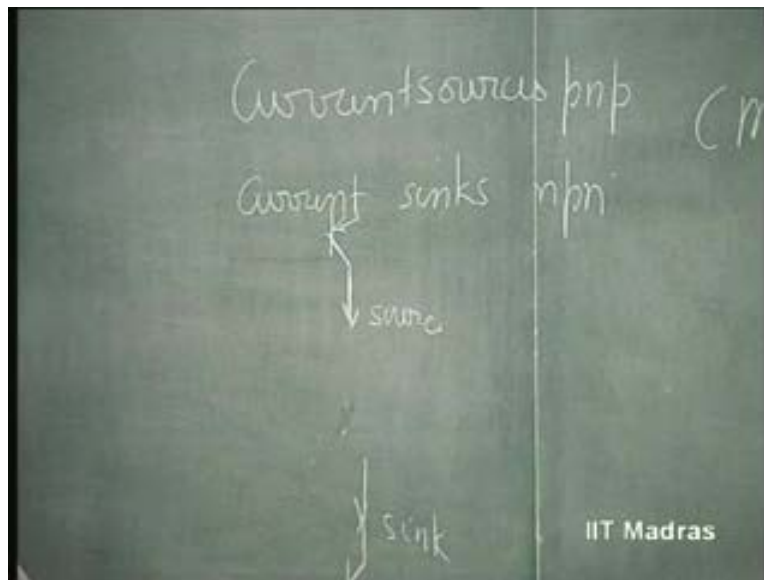 Current sources pnp (M
Current sinks npn
source
sink
IIT Madras